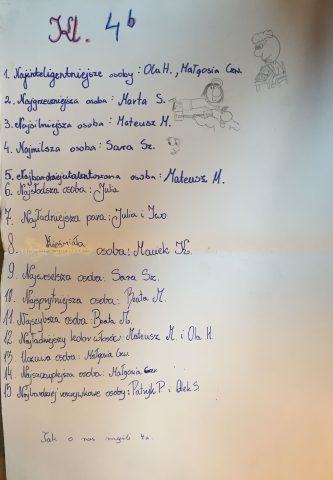 Kl. 4b
1. Najinteligentniejsze osoby: Ola H., Małgosia Czw.
2. Najgrzeczniejsza osoba: Marta S.
3. Najsilniejsza osoba: Mateusz M.
4. Najmilsza osoba: Sara Sz.
5. Najbardziej utalentowana osoba: Mateusz M.
6. Najsłodsza osoba: Julia
7. Najładniejsza para: Julia i Iwo
8. Nieśmiała osoba: Marek K.
9. Najweselsza osoba: Sara Sz.
10. Najsprytniejsza osoba: Beata M.
11. Najszybsza osoba: Beata M.
12. Najładniejszy kolor włosów: Mateusz M. i Ola H.
13. Uczciwa osoba: Małgosia Czw.
14. Najszczuplejsza osoba: Małgosia Czw.
15. Najbardziej rozrywkowe osoby: Patryk P. i Olek S.
Tak o nas myśli 4a.